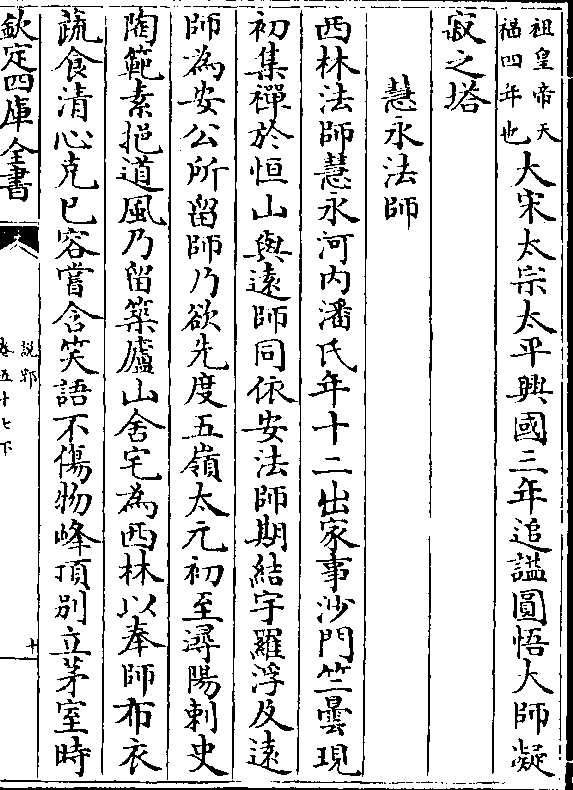 祖皇帝天
福四年也
大宋太宗太平興國三年追謚圓悟大師凝
寂之塔
慧永法師
西林法師慧永河内潘氏年十二出家事沙門竺曇現
初集禪於恒山與遠師同依安法師期結宇羅浮及遠
師為安公所留師乃欲先度五嶺太元初至潯陽刺史
陶範素挹道風乃留築廬山舍宅為西林以奉師布衣
蔬食清心克己容嘗含笑語不傷物峰頂别立茅室時
欽定四庫全書
說郛
卷五十七下
十